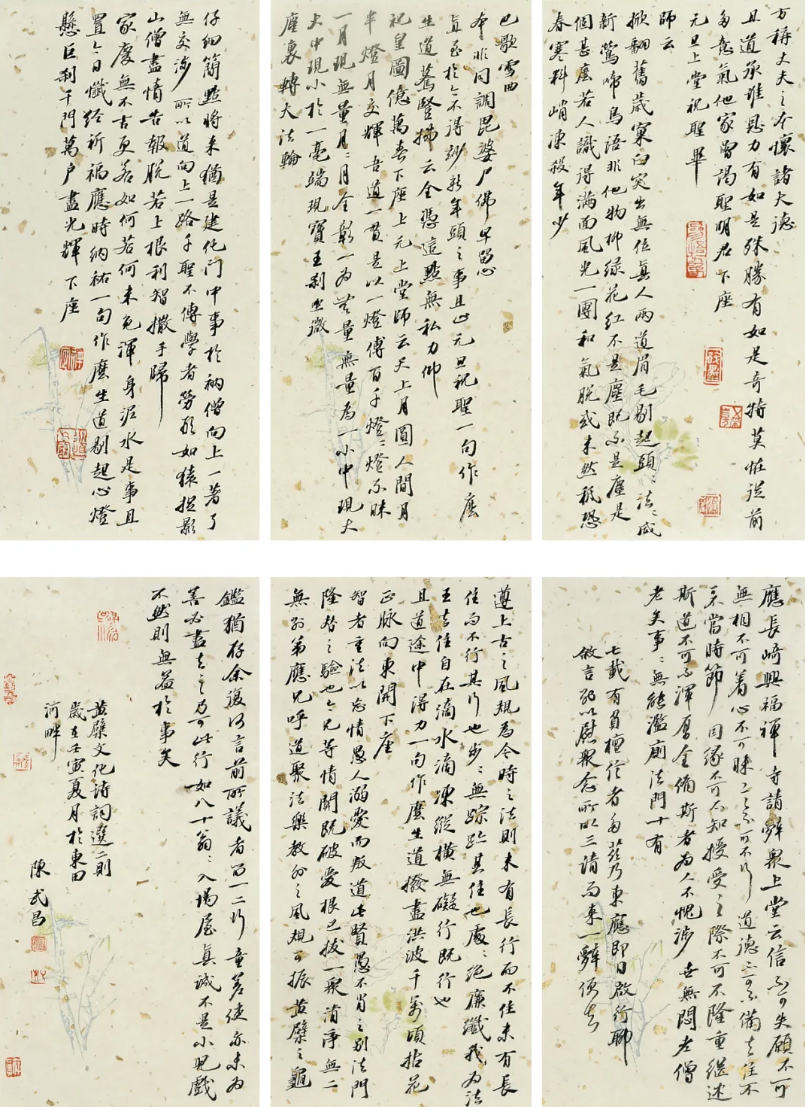 方稱丈夫之本懷諸大德
且道承誰恩力有如是殊勝有如是奇特莫怪從前
多意氣他家曾謁聖明君下座
元旦上堂祝聖畢
師云
掀翻舊歲窠臼突出無位真人兩道眉毛剔起頭頭法法成
新鶯啼鳥語非他物柳綠花紅不是塵既不是塵是
個甚麼若人識得滿面風光一團和氣脫或未然秖恐
春寒料峭凍殺年少
巴歌雪曲
本非同調毘婆尸佛早留心
直至於今不得妙新年頭之事且止元旦祝聖一句作麼
生道驀豎拂云全憑這點無私力仰
祝皇圖億萬春下座上元上堂師云天上月圓人間月
半燈月交輝吾道一貫是以一燈傳百千燈燈燈不昧
一月現無量月月月全彰一為無量無量為一小中現大
大中現小於一毫端現寶王剎坐微
塵裏轉大法輪
仔細簡點將來猶是建化门中事於衲僧向上一著了
無交涉所以道向上一路千聖不傳學者勞形如猿捉影
山僧盡情告報脫若上根利智撒手歸
家處無不古更若如何若何未免渾身泥水是事且
置今日懺經祈福應時納祐一句作麼生道剔起心燈
懸巨刹千門萬户盡光輝下座
應長崎興福禪寺請辭眾上堂云信不可失願不可
無相不可着心不可昧之言不可不行道德不可不備去住不
乖當時節因緣不可不知授受之際不可不隆重繼述
斯道不可不渾厚全備斯者為人不愧涉世無悶老僧
老矣事事無能濫廁法門十有
七載有負檀信者多茲乃東應即日啟行聊
敘言別以慰眾念所以三請而來一辭便去
遵上古之風規為今時之法則未有長行而不住未有長
住而不行其行也步步無踪跡其住也處處絕廉纖我為法
王去住自在滴水滴凍縱橫無礙行既行也
且道途中得力一句作麼生道撥盡洪波千萬頃拈花
正脉向東開下座
智者重法以忘情愚人溺愛而叛道此賢愚不肖之別法門
隆替之驗也今兄等情關既破愛根已拔一眾清淨無二
無別第應兄呼道聚法樂教外之風規可振黃檗之龜
鑑猶存余復何言前所議者乃一二行童差使亦未為
善必盡去之乃可此行如八十翁翁入場屋真誠不是小兒戲
不然則無益於事矣
黄檗文化诗詞選二則
歲在壬寅夏月於東田
河畔
陳武昌